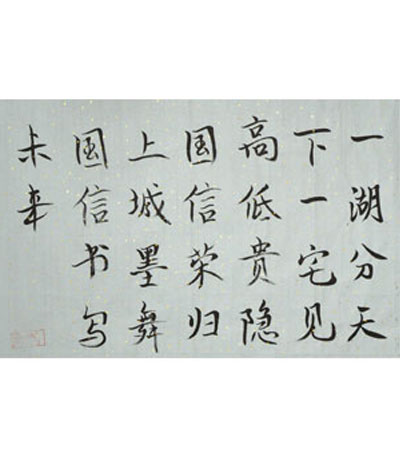 一湖分天
下一宅见
高低贵隐
国信荣归
上城墨舞
国信书写
未来